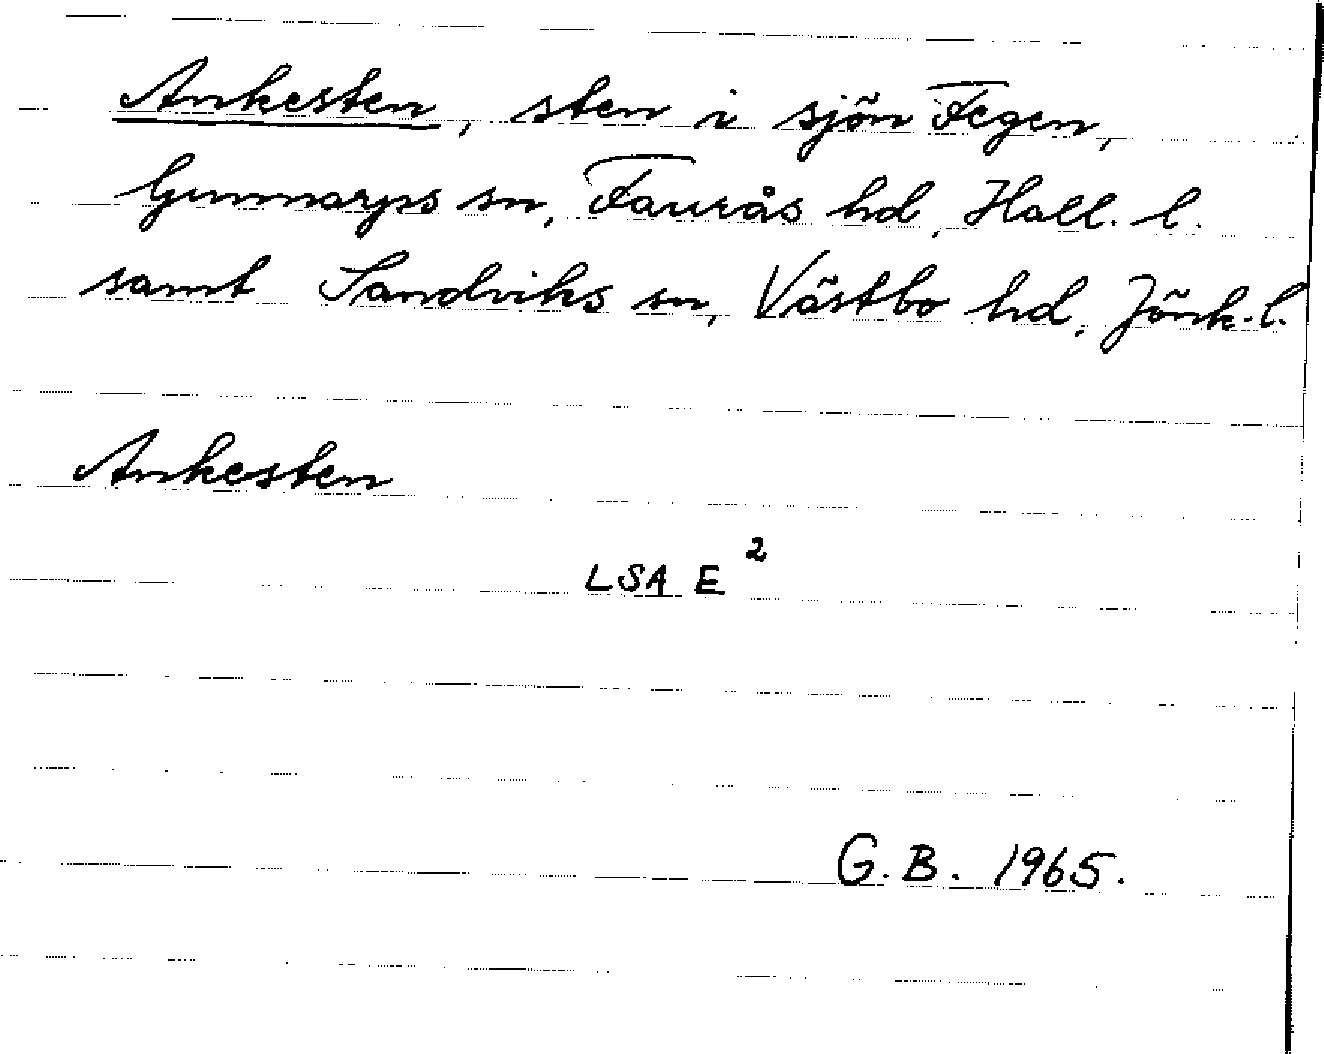 Ankesten, sten i sjön Fegen,
Gunnarps sn, Faurås hd, Hall. l.
samt Sandviks sn, Västbo hd, Jönk. l.
Ankesten
LSA E²
G.B. 1965.